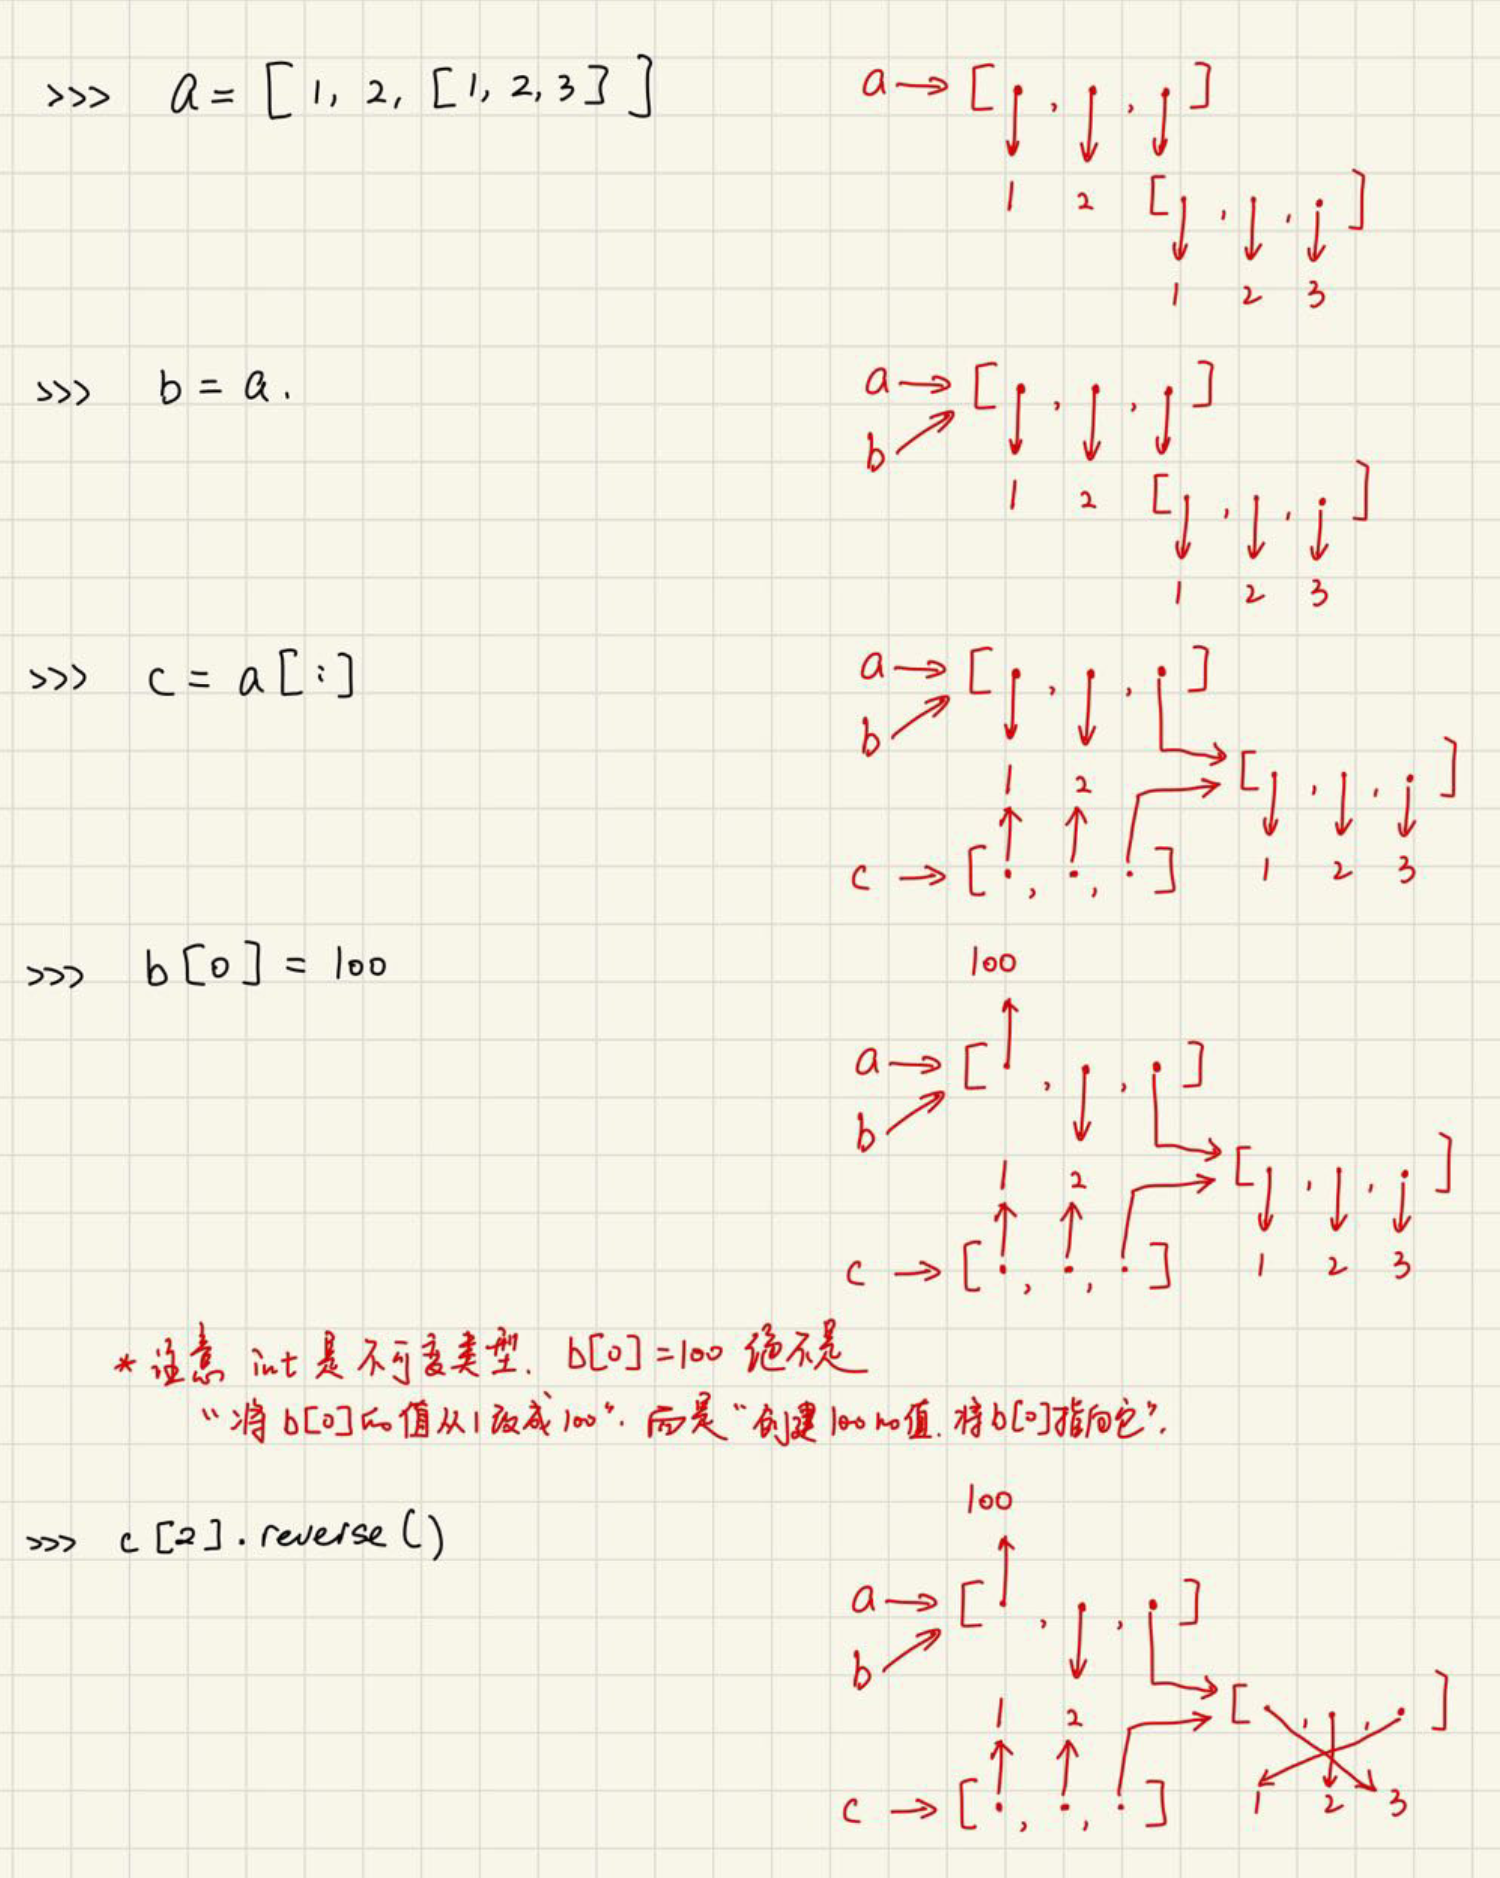 >>> a = [1, 2, [1, 2, 3]]
a → [ . , . , . ]
1 2 [ . , . , . ]
1 2 3
>>> b = a.
a → [ . , . , . ]
b
1 2 [ . , . , . ]
1 2 3
>>> c = a[:]
a → [ . , . , . ]
b
1 2 [ . , . , . ]
c → [ . , . , . ] 1 2 3
>>> b[0] = 100
100
a → [ . , . , . ]
b
1 2 [ . , . , . ]
c → [ . , . , . ] 1 2 3
* 注意 int 是不可变类型. b[0]=100 绝不是
“将 b[0]的值从1改成100”. 而是“创建100的值. 将b[0]指向它”.
>>> c[2].reverse()
100
a → [ . , . , . ]
b
1 2 [ . , . , . ]
c → [ . , . , . ] 1 2 3